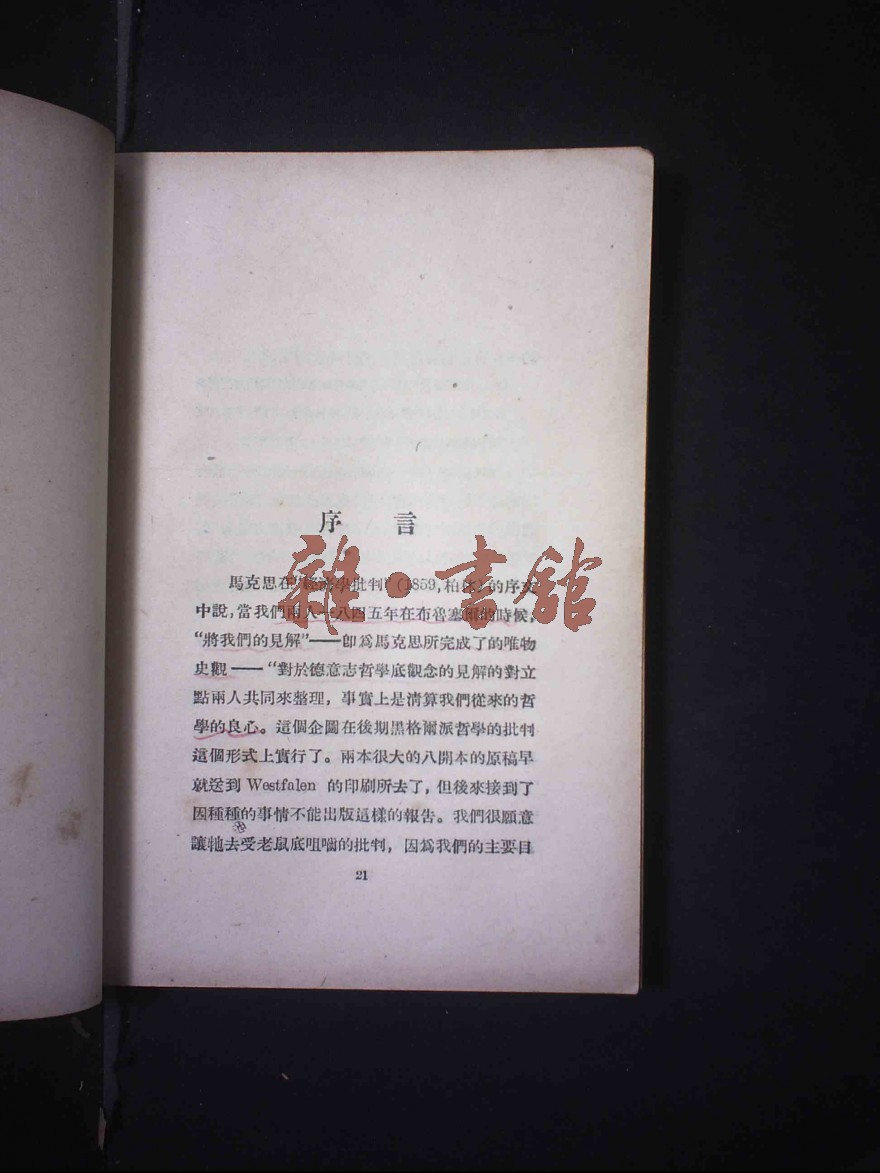 序言
馬克思在“經濟學批判”（1859，柏林）的序文
中說，當我們兩人一八四五年在布魯塞爾的時候，
“將我們的見解”——即爲馬克思所完成了的唯物
史觀——“對於德意志哲學底觀念的見解的對立
點兩人共同來整理，事實上是清算我們從來的哲
學的良心。這個企圖在後期黑格爾派哲學的批判
這個形式上實行了。兩本很大的八開本的原稿早
就送到 Westfalen 的印刷所去了，但後來接到了
因種種的事情不能出版這樣的報告。我們很願意
讓牠去受老鼠底咀嚙的批判，因爲我們的主要目
21
雜·書館